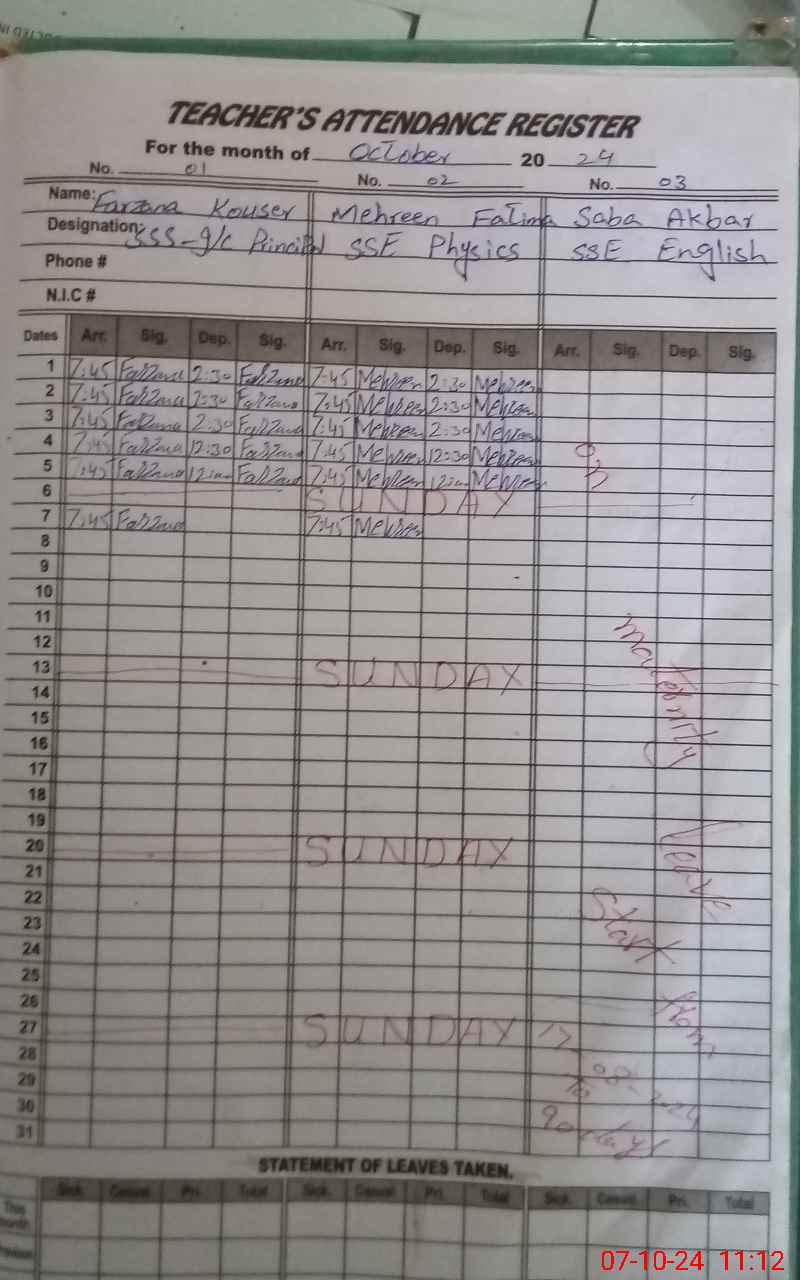 TEACHER'S ATTENDANCE REGISTER
For the month of October 20 24
No. 01 No. 02 No. 03
Name: Farzana Kouser Mehreen Fatima Saba Akbar
Designation: SSS-I/C Principal SSE Physics SSE English
Phone #
N.I.C #
Dates Arr. Sig. Dep. Sig. Arr. Sig. Dep. Sig. Arr. Sig. Dep. Sig.
1 7:45 Farzana 2:30 Farzana 7:45 Mehreen 2:30 Mehreen
2 7:45 Farzana 2:30 Farzana 7:45 Mehreen 2:30 Mehreen
3 7:45 Farzana 2:30 Farzana 7:45 Mehreen 2:30 Mehreen
4 7:45 Farzana 12:30 Farzana 7:45 Mehreen 12:30 Mehreen on
5 7:45 Farzana Farzana 7:45 Mehreen Mehreen
6 SUNDAY
7 7:45 Farzana 7:45 Mehreen
8
9
10
11
12 Maternity
13 SUNDAY
14
15
16
17
18
19
20 SUNDAY Leave
21
22
23 Start
24
25
26 from
27 SUNDAY 17
28 08-2024
29 to
30 90 days
31
STATEMENT OF LEAVES TAKEN.
Sick. Casual. Pri. Total Sick. Casual. Pri. Total Sick. Casual. Pri. Total
This month
Previous
07-10-24 11:12